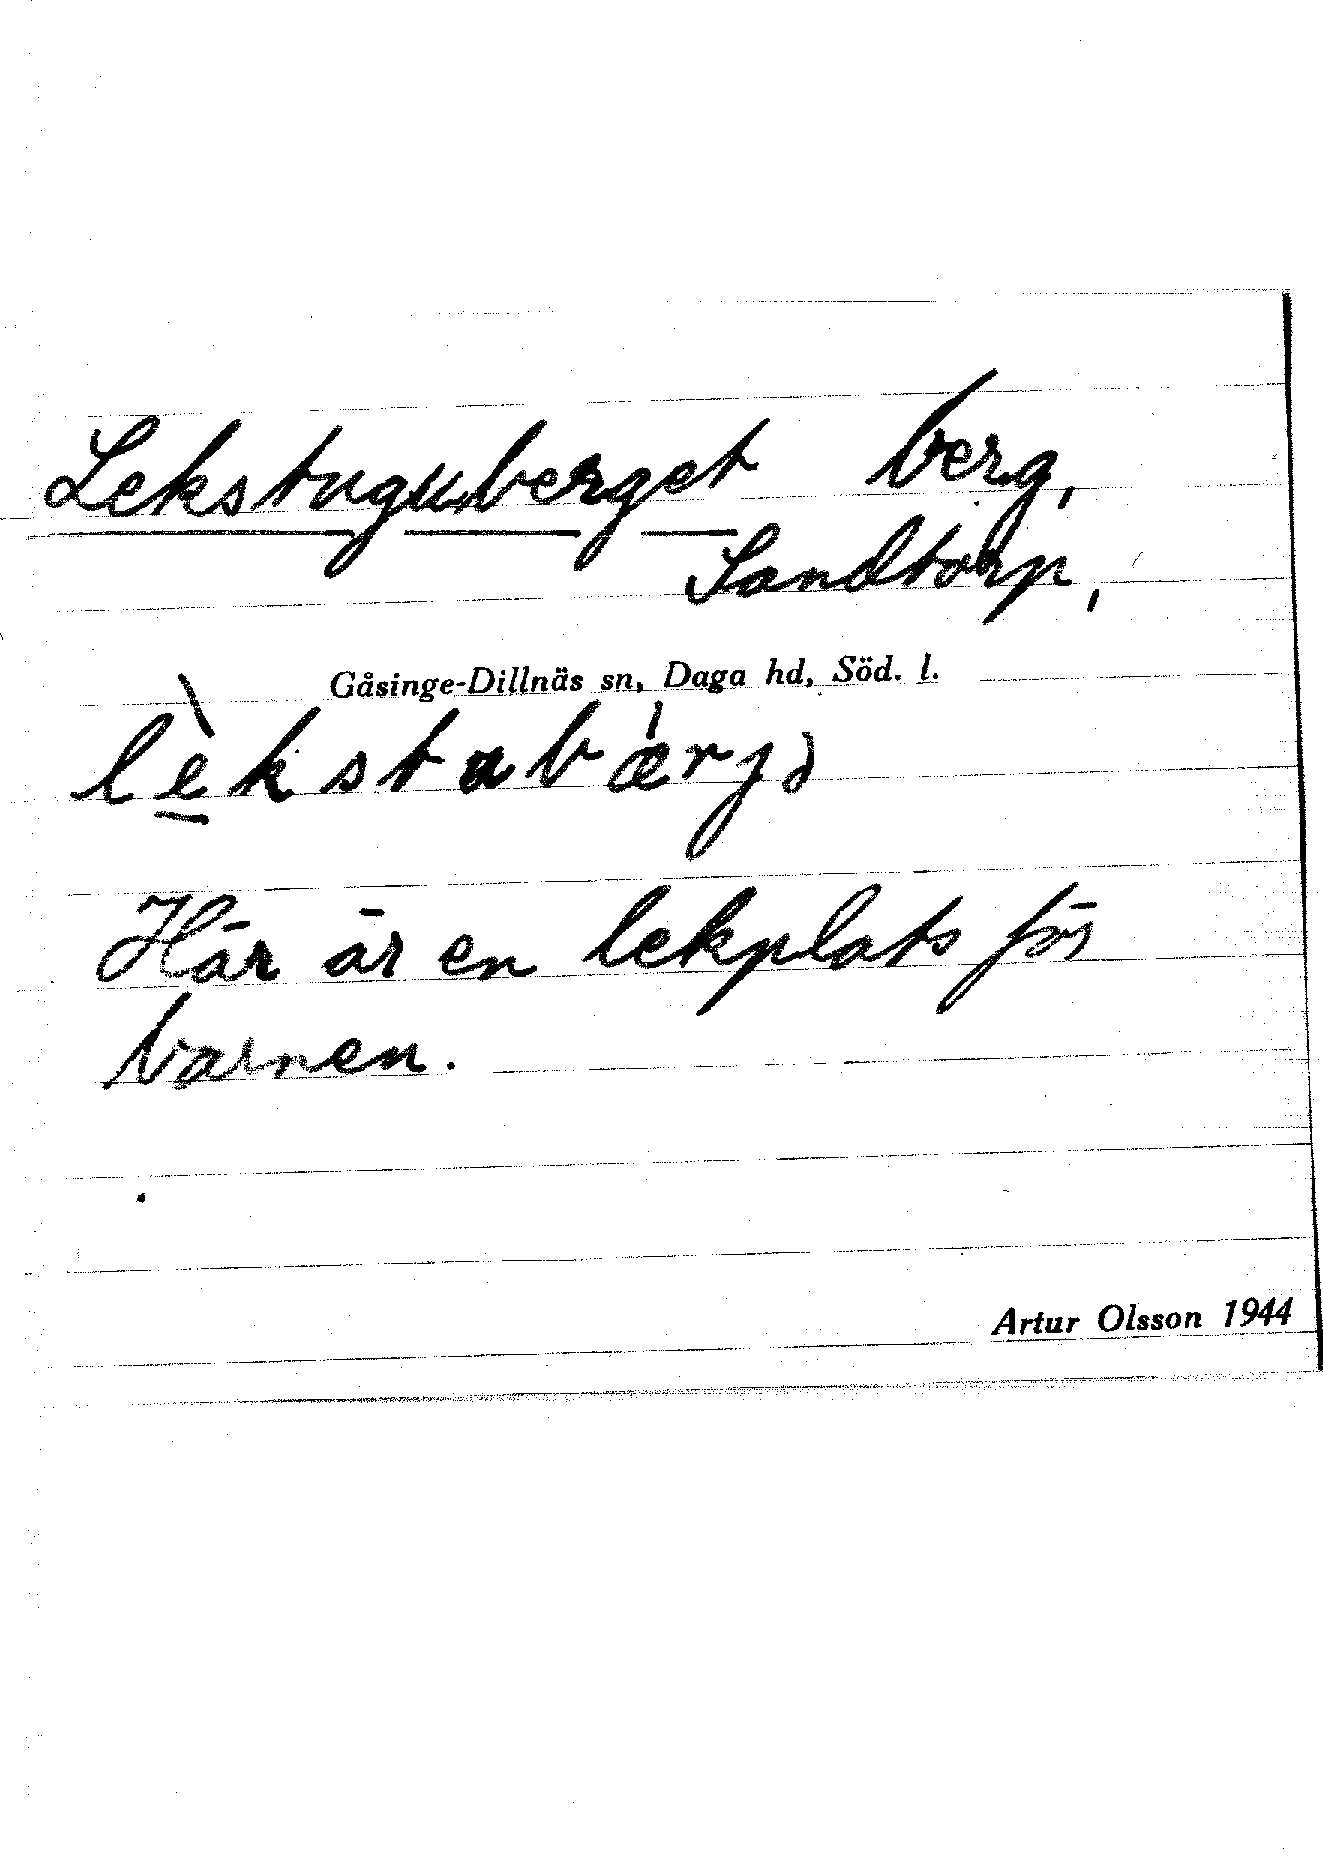 Lekstuguberget berg,
Sandtorp,
Gåsinge-Dillnäs sn, Daga hd, Söd. l.
lè̱kstubǽrjə
Här är en lekplats för
barnen.
Artur Olsson 1944